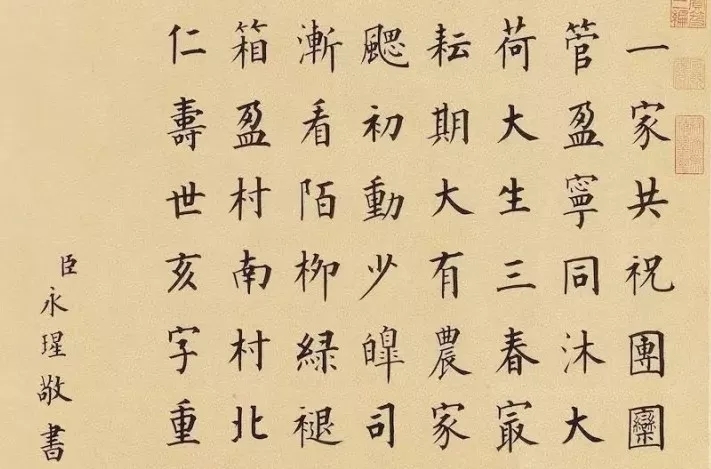 一家共祝團圞
管盈寧同沐大
荷大生三春㝡
耘期大有農家
颸初動少皞司
漸看陌柳緑褪
箱盈村南村北
仁壽世亥字重
臣永瑆敬書